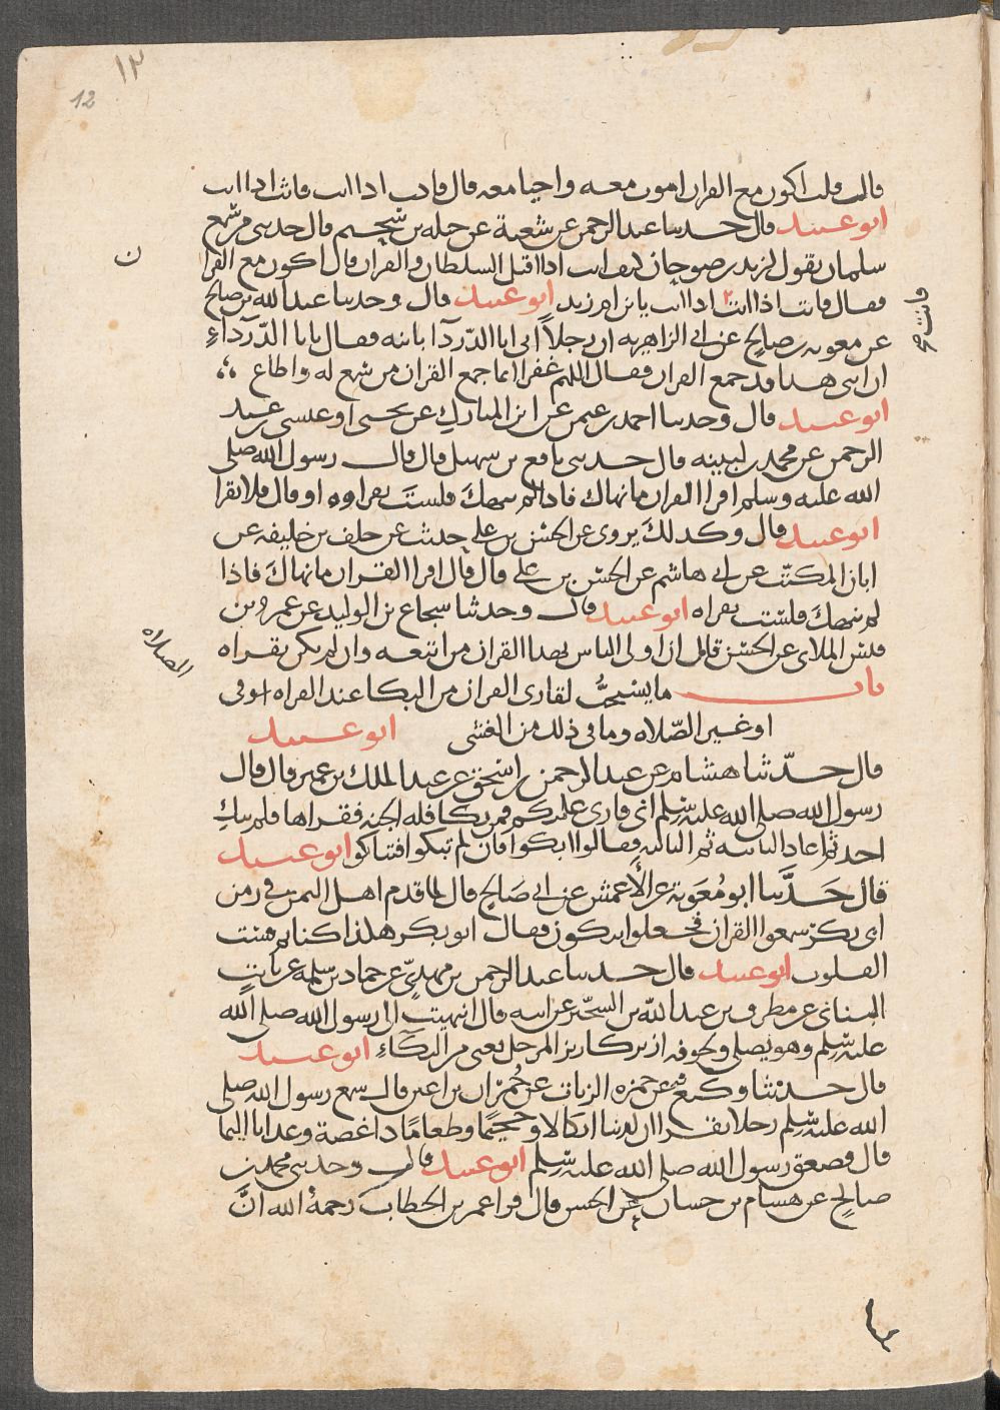 ١٢
12
قال قلت اكون مع القران اموت معه واحيا معه قال فانت اذا انت فانت اذا انت
ابو عبيد قال حدثنا عبد الرحمن عن شعبة عن جبله بن سحيم قال حدثني من سمع
سلمان يقول لزيد بن صوحان كيف انت اذا اقتتل السلطان والقران قال اكون مع القرا
ن
فقال فانت اذا انت اذا انت يا بن ام زيد ابو عبيد قال وحدثنا عبد الله بن صالح
فانت صح
عن معويه بن صالح عن ابي الزاهريه ان رجلا اتى ابا الدردآ بابنه فقال يابا الدردآء
ان ابني هذا قد جمع القران فقال اللهم غفرا انما جمع القران من سمع له واطاع
ابو عبيد قال وحدثنا احمد بن عن ابن المبارك عن يحيى او عيسى عبد
الرحمن عن محمد بن لبينه قال حدثني نافع بن سهيل قال قال رسول الله صلى
الله عليه وسلم اقرا القران ما نهاك فاذا لم ينهك فلست بقراوه او قال فلا تقرا
ابو عبيد قال وكذلك يروى عن الحسن بن علي حدثت عن خلف بن خليفه عن
ابان المكتب عن ابي هاشم عن الحسن بن علي قال قال اقرا القران ما نهاك فاذا
لم ينهك فلست بقراه ابو عبيد قال وحدثنا شجاع بن الوليد عن عمرو بن
قيس الملاي عن الحسن قال ان اولى الناس بهذا القران من اتبعه وان لم يكن يقراه
باب ما يستحب لقارى القران من البكا عند القراه او في
الصلاه
او غير الصلاه وما في ذلك من الغشي ابو عبيد
قال حدثنا هشام عن عبد الرحمن بن اسحق عن عبد الملك بن عمير قال قال
رسول الله صلى الله عليه وسلم اني قارى عليكم فمن بكا فله الجنه فقراها فلم يبك
احد ثم اعاد الثانيه ثم الثالثه فقالوا ابكوا فان لم تبكوا فتباكوا ابو عبيد
قال حدثنا ابو معوية عن الاعمش عن ابي صالح قال لما قدم اهل اليمن في زمن
ابي بكر سمعوا القران فجعلوا يبكون فقال ابو بكر هكذا كنا ثم قست
القلوب ابو عبيد قال حدثنا عبد الرحمن بن مهدي عن حماد بن سلمه عن ثابت
البناني عن مطرف بن عبد الله بن الشخير عن ابيه قال انتهيت الى رسول الله صلى الله
عليه وسلم وهو يصلي ولجوفه ازيز كازيز المرجل يعني من البكآء ابو عبيد
قال حدثنا وكيع عن حمزه الزيات عن حمران بن اعين قال سمع رسول الله صلى
الله عليه وسلم رجلا يقرا ان لدينا انكالا وجحيما وطعاما ذا غصة وعذابا اليما
قال فصعق رسول الله صلى الله عليه وسلم ابو عبيد قال وحدثني محمد بن
صالح عن هشام بن حسان عن الحسن قال قرا عمر بن الخطاب رحمة الله ان